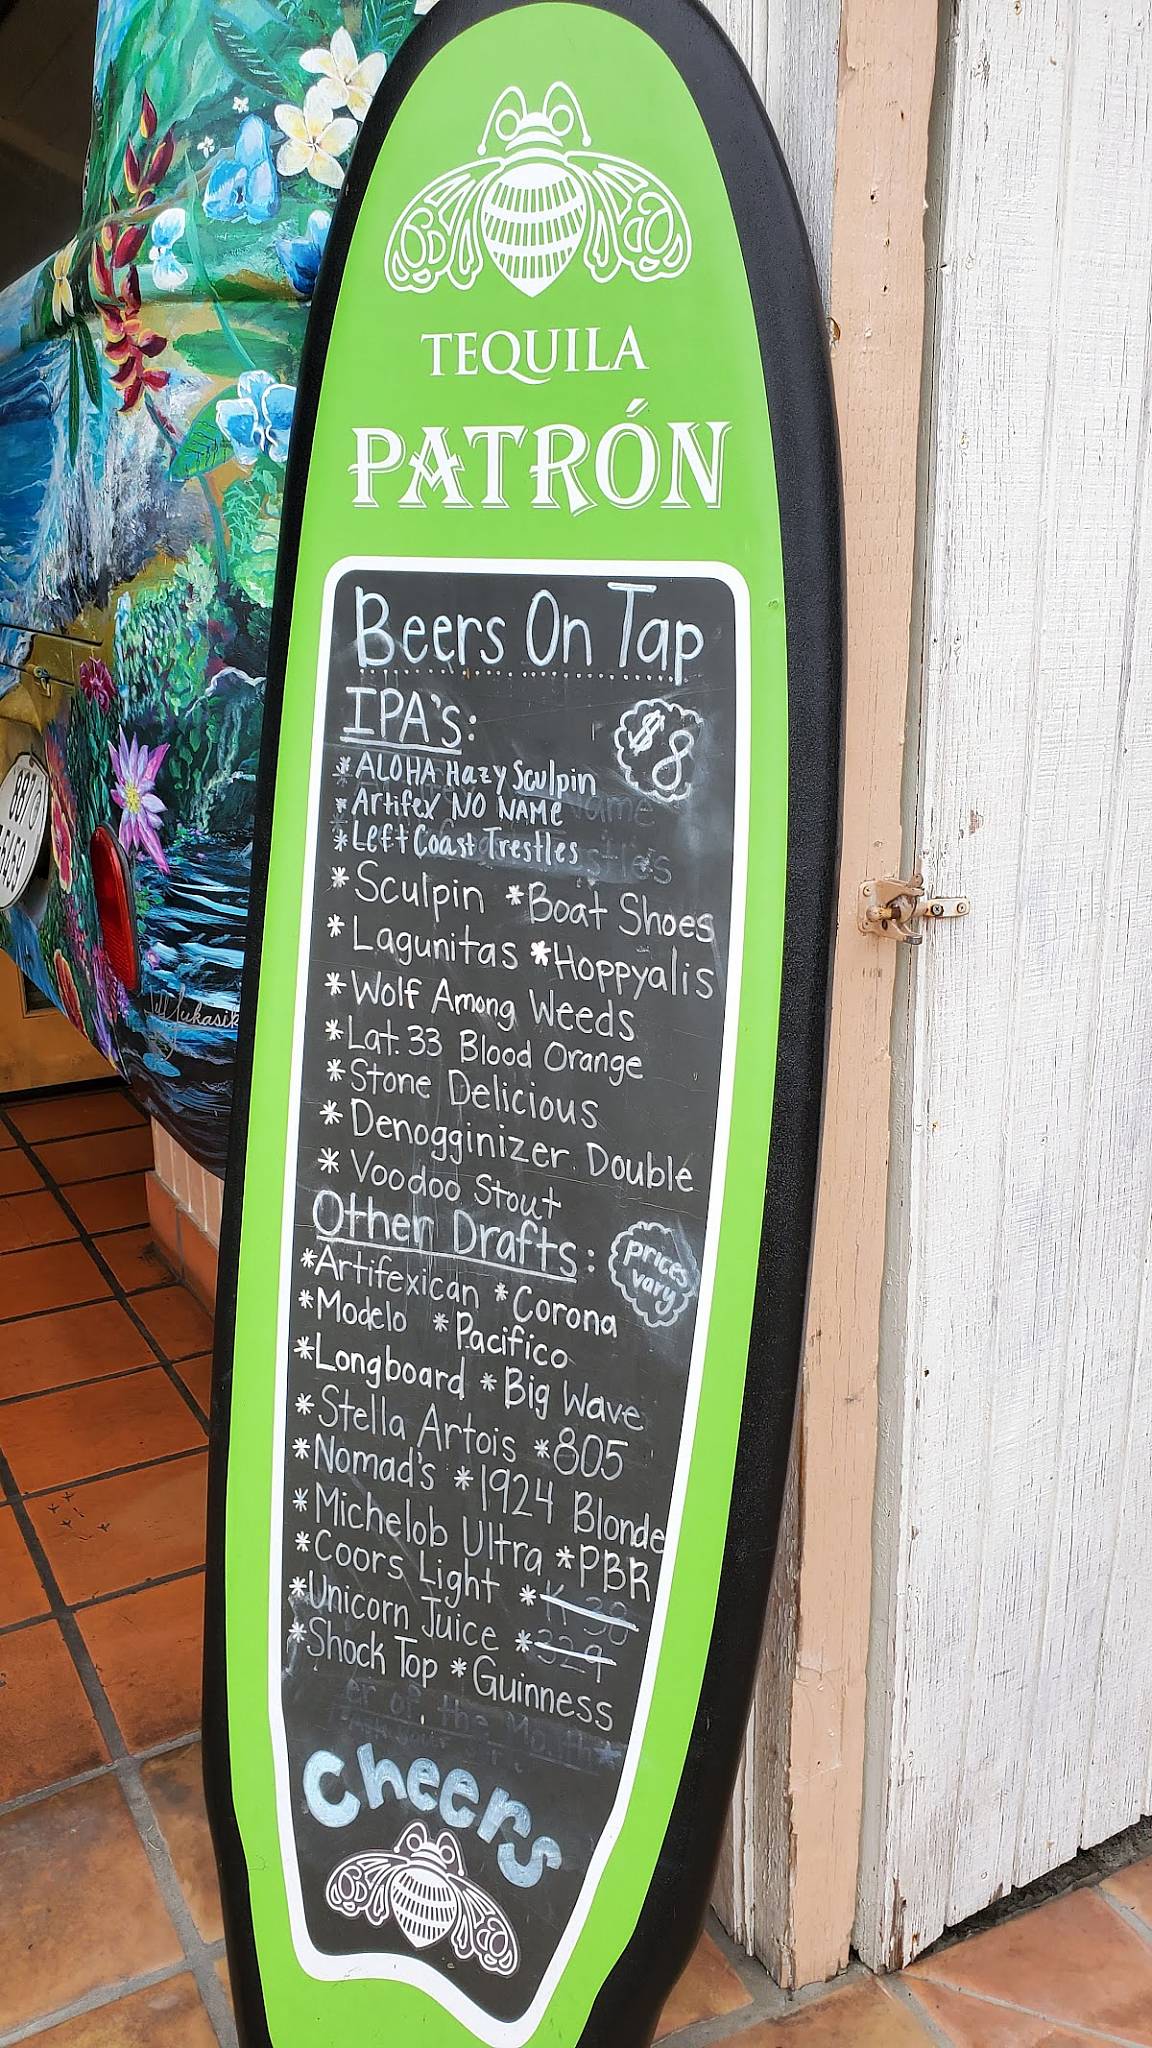 TEQUILA
PATRÓN
Beers On Tap
IPA's:
$8
* ALOHA Hazy Sculpin
* Artifex NO NAME
* Left Coast Trestles
* Sculpin * Boat Shoes
* Lagunitas * Hoppyalis
* Wolf Among Weeds
* Lat. 33 Blood Orange
* Stone Delicious
* Denogginizer Double
* Voodoo Stout
Other Drafts:
prices
vary
* Artifexican * Corona
* Modelo * Pacifico
* Longboard * Big Wave
* Stella Artois * 805
* Nomad's * 1924 Blonde
* Michelob Ultra * PBR
* Coors Light * K 38
* Unicorn Juice * 329
* Shock Top * Guinness
er of the Month
Cheers